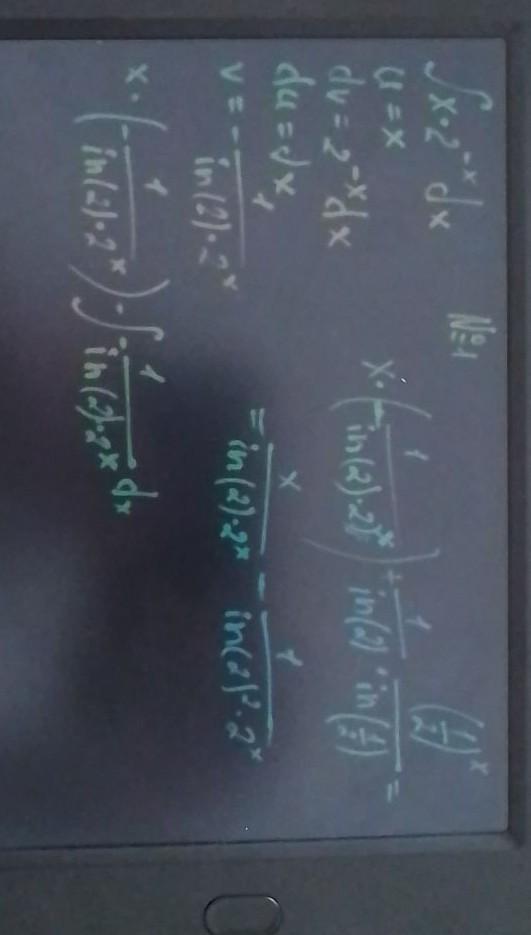 №1
∫ x·2^{-x} dx
u = x
dv = 2^{-x} dx
du = dx
v = - 1/(in(2)·2^x)
x·(- 1/(in(2)·2^x)) - ∫ - 1/(in(2)·2^x) dx
x·(- 1/(in(2)·2^x)) + 1/in(2) · (1/2)^x/in(1/2) =
= x/(in(2)·2^x) - 1/(in(2)^2·2^x)